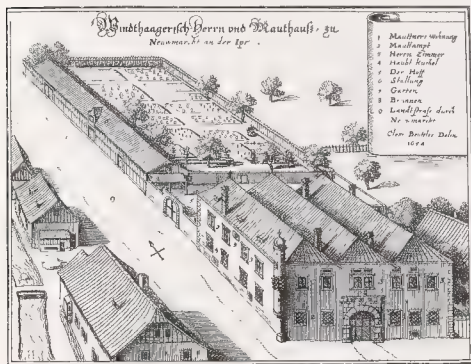 Windthaagersch Herrn vnd Mauthauß, zu
Neumarckt an der Ips.
1 Mauttners wohnung
2 Mautampt
3 Herrn Zimmer
4 Haubt kuchel
5 Der Hoff
6 Stallung
7 Garten
8 Brunnen
9 Landtstrass durch
Neumarckt
Clem Beütler Delin.
1654